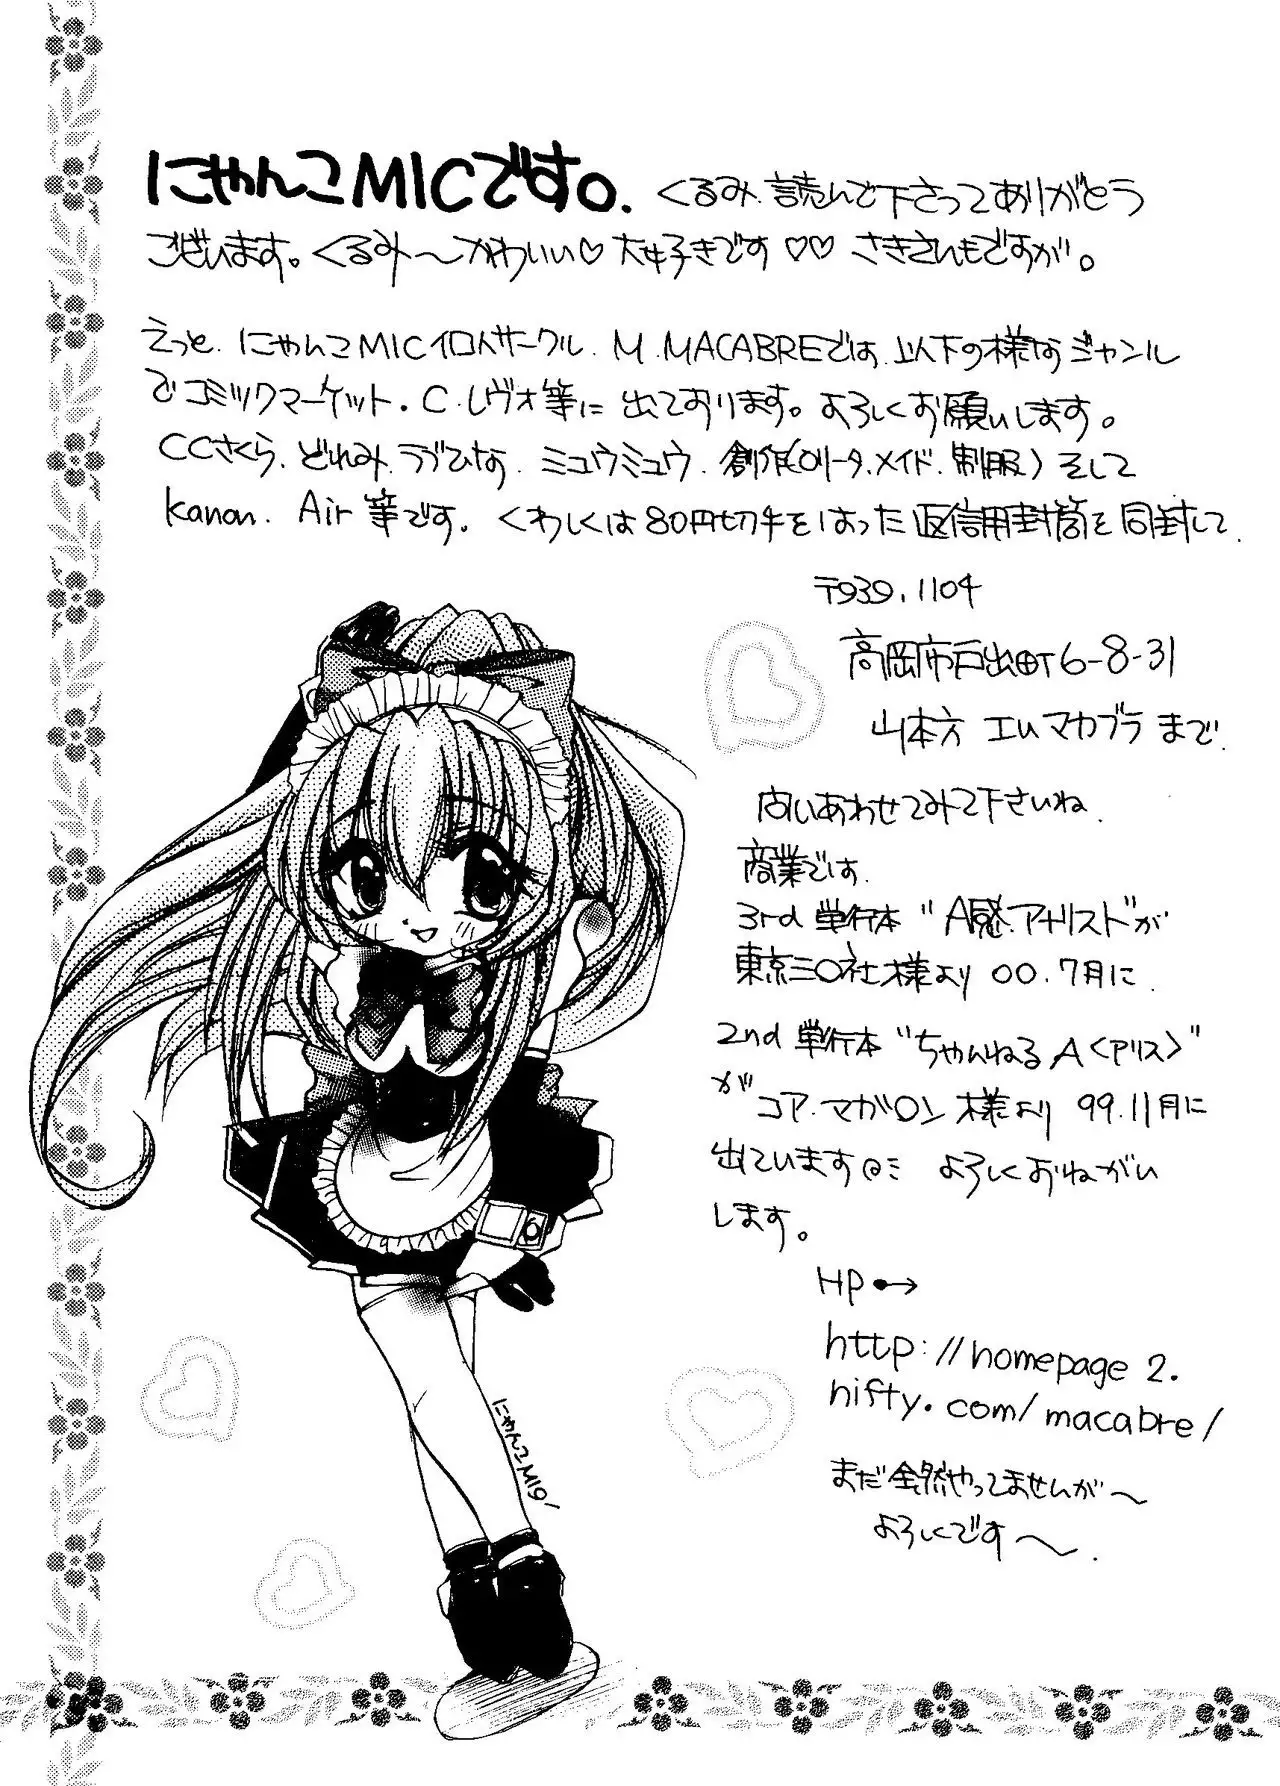 にゃんこMICです。くるみ、読んで下さってありがとう
ございます。くるみ〜かわいい♡大好きです♡♡さきさんもですが。
えっと、にゃんこMIC個人サークル、M.MACABREでは、以下の様なジャンル
でコミックマーケット・C.レヴォ等に出ております。よろしくお願いします。
CCさくら、どれみ、ラブひな、ミュウミュウ、創作(ロリータ、メイド、制服)そして
Kanon、Air等です。くわしくは80円切手をはった返信用封筒を同封して、
〒939.1104
高岡市戸出町6-8-31
山本方 エムマカブラ まで、
問いあわせてみて下さいね。
商業では、
3rd 単行本 "A感、アナリスト"が
東京三〇社様より 00.7月に、
2nd 単行本 "ちゃんねるA〈アリス〉"
が コア.マガ〇ン 様より 99.11月に
出ています よろしくおねがい
します。
HP→
http://homepage2.
nifty.com/macabre/
まだ全然やってませんが〜
よろしくです〜.
にゃんこMIC